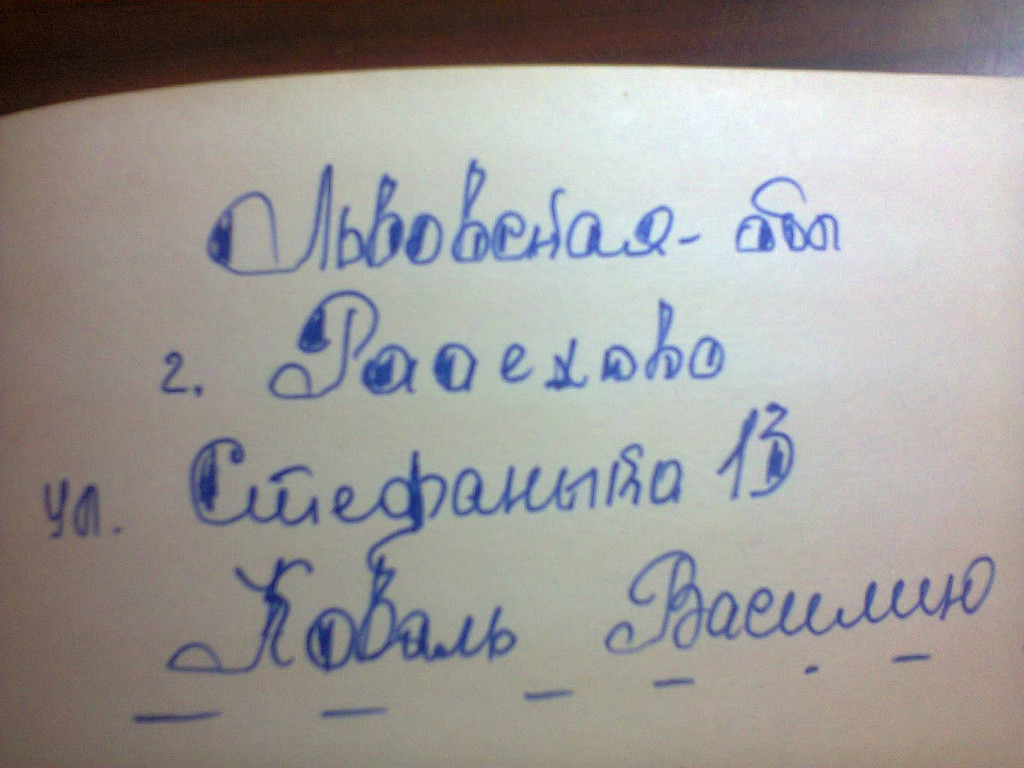 Львовская-обл
г. Радехово
ул. Стефаныка 13
Коваль Василию